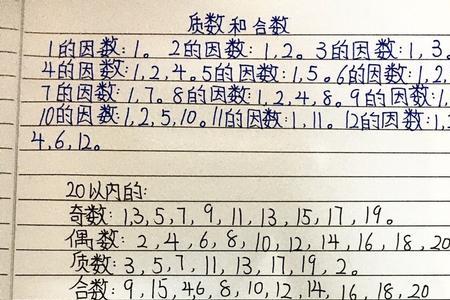 质数和合数
1的因数：1。 2的因数：1，2。3的因数：1，3。
4的因数：1，2，4。5的因数：1，5。6的因数：1，2，
7的因数：1，7。8的因数：1，2，4，8。9的因数：1，
10的因数：1，2，5，10。11的因数：1，11。12的因数：1，
4，6，12。
20以内的：
奇数：1，3，5，7，9，11，13，15，17，19。
偶数：2，4，6，8，10，12，14，16，18，20
质数：3，5，7，11，13，17，19，2。
合数：9，15，4，6，8，10，12，14，16，18，20